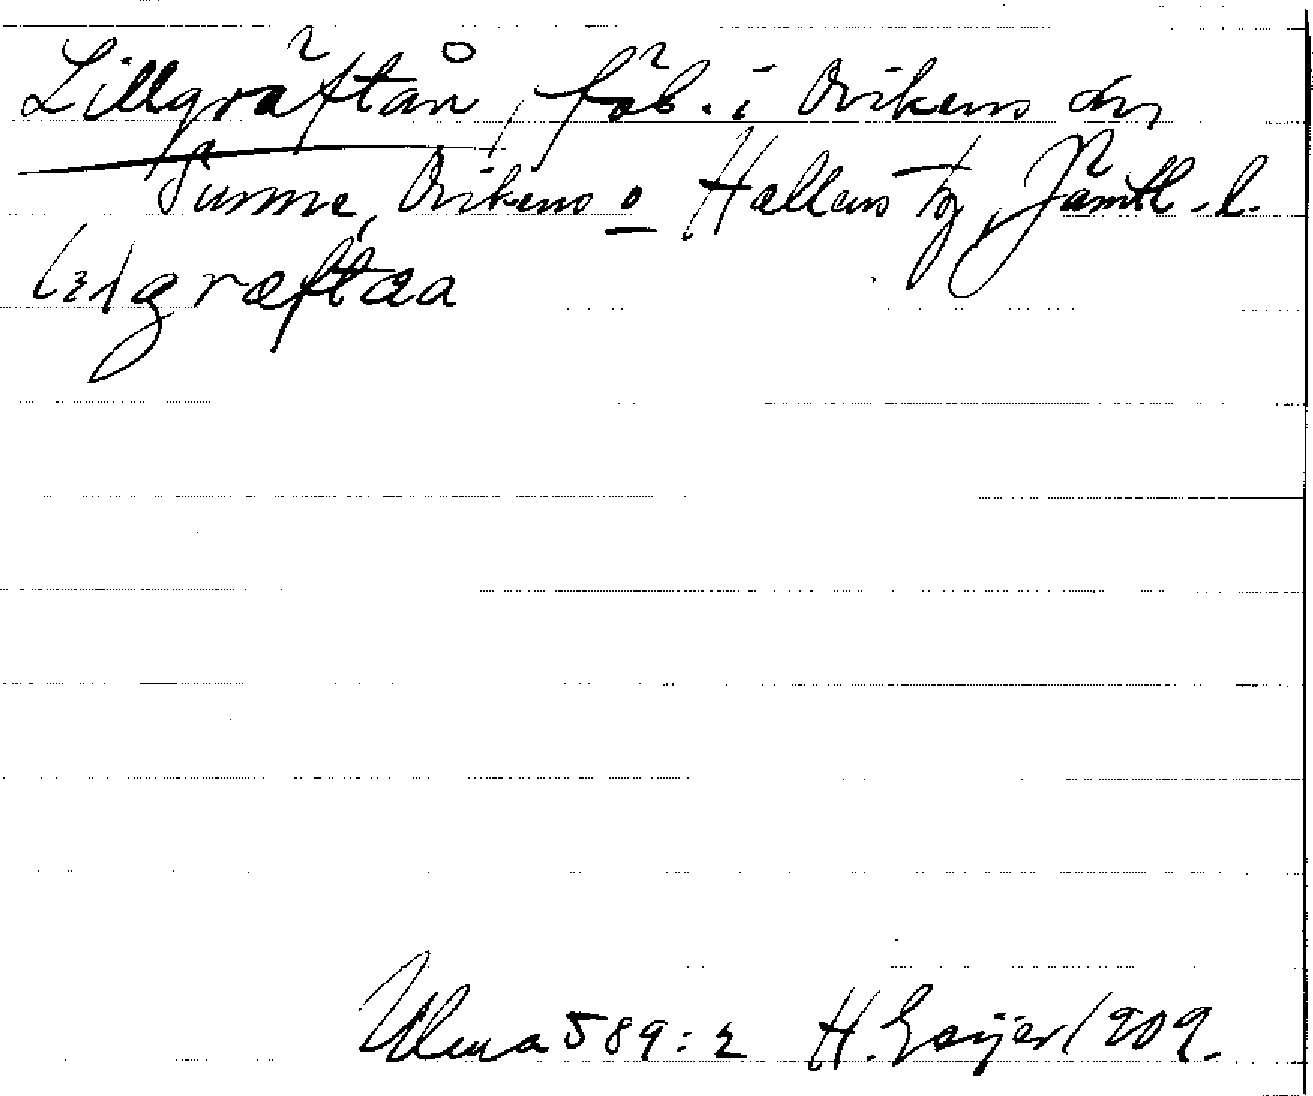 Lillgräftån, fäb. i Ovikens sn,
Sunne, Ovikens o Hallens tg, Jämtl. l.
græftaa
Ulma 589:2 H. Geijer 1909.